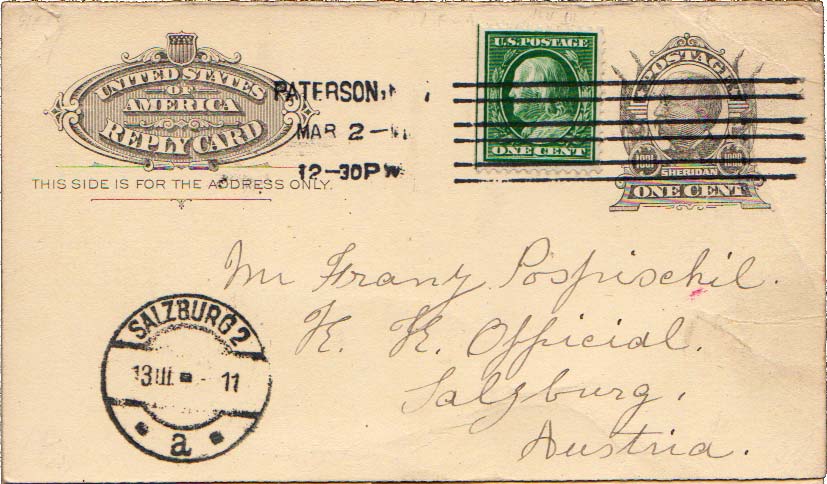 UNITED STATES
OF
AMERICA
REPLY CARD
THIS SIDE IS FOR THE ADDRESS ONLY.
PATERSON,
MAR 2
12-30P
U.S. POSTAGE
ONE CENT
POSTAGE
SHERIDAN
ONE CENT
Mr Franz Pospischil.
K. K. Official.
Salzburg,
Austria.
SALZBURG 2
13 III 11
a